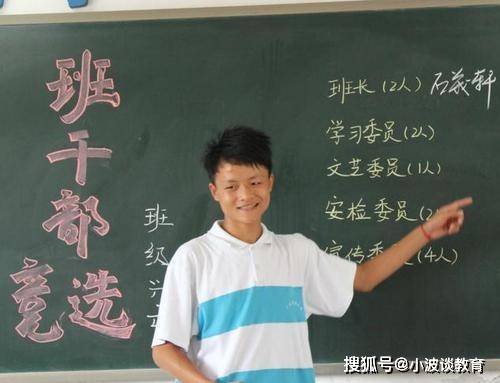 班干部竞选
班级兴
班长(2人) 石羲轩
学习委员(2人)
文艺委员(1人)
安检委员(2
宣传委员(4人)
搜狐号@小波谈教育